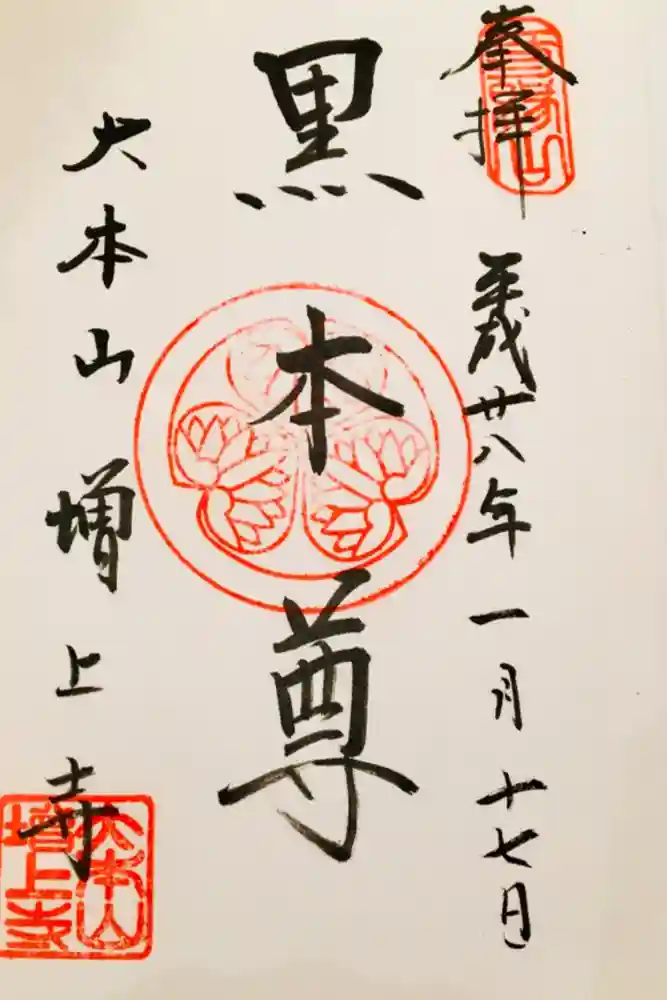 奉拝
平成廿八年一月十七日
黒本尊
大本山増上寺
大本山
増上寺